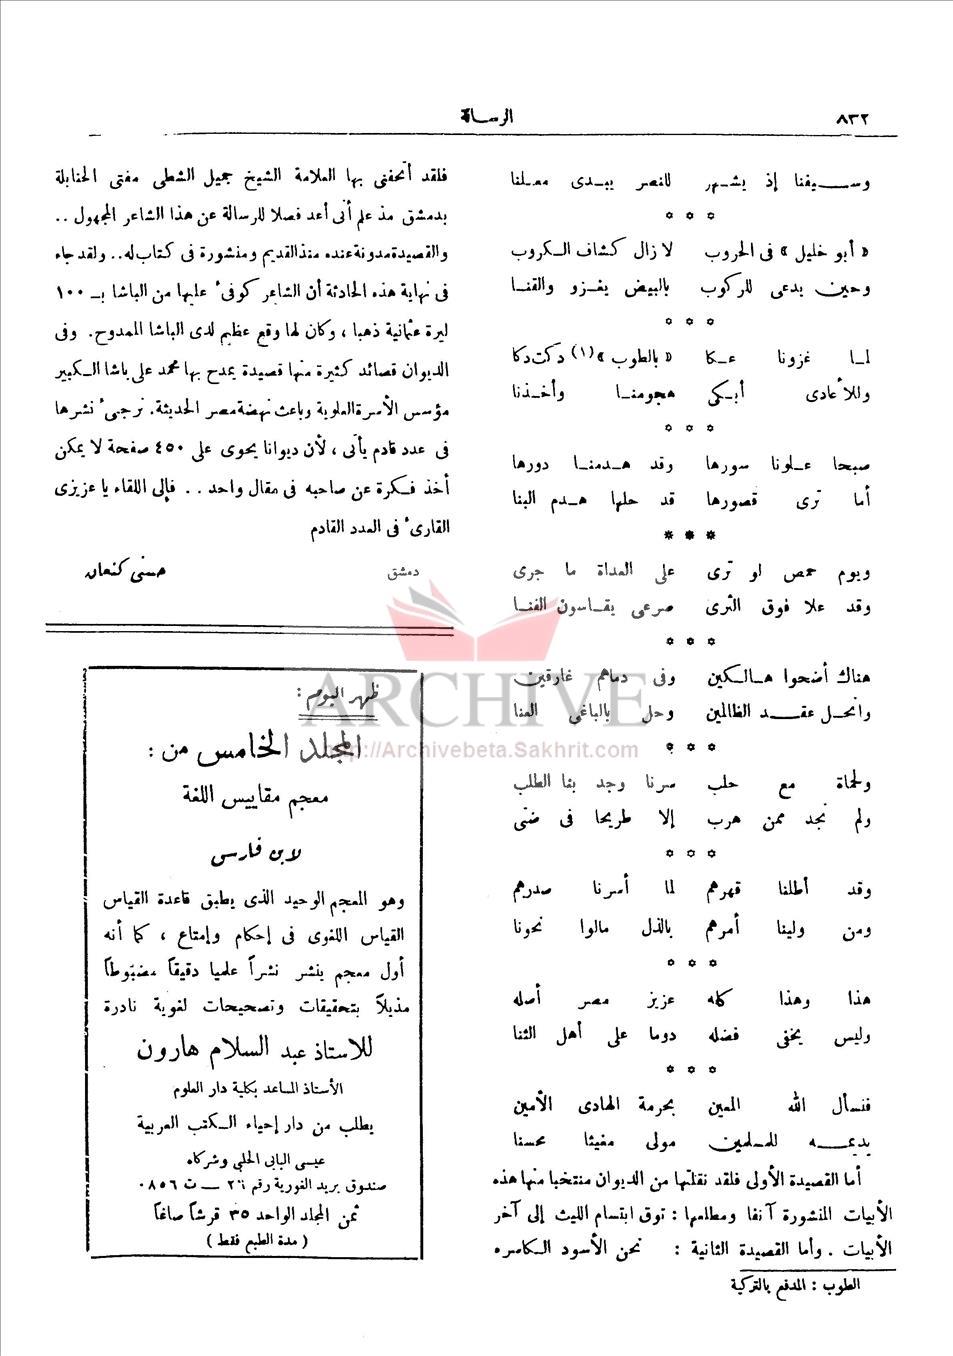 ٨٣٢
الرسالة
وســيفنا إذ يشـهر للنصر يبـدى معـلنا
* * *
« أبو خليل » فى الحروب لا زال كشاف الـكروب
وحين يدعى للركوب بالبيض يغـزو والقنـا
* * *
لمـا غزونا عـكا « بالطوب » (١) دكت دكا
وللأعادى أبـكى هجومنـا وأخـذنا
* * *
صبحا عـلونا سورها وقد هـدمنـا دورها
أما ترى قصورها قد حلها هـدم البنا
* * *
ويوم حمص او ترى على العداة ما جرى
وقد علا فوق الثرى صرعى يقـاسون الفنـا
* * *
هناك أضحوا هـالـكين وفى دماهم غارقين
وانحـل عقـد الظالمين وحل بالباغى العنا
* * *
ولحماة مع حلب سرنا وجد بنا الطلب
ولم نجد ممن هرب إلا طريحا فى ضنى
* * *
وقد أطلنا قهرهم لما أسرنا صدرهم
ومن ولينا أمرهم بالذل مالوا نحونا
* * *
هذا وهذا كله عزيز مصر أصله
وليس يخفى فضله دوما على أهل الثنا
* * *
فنسأل الله المعين بحرمة الهادى الأمين
يديمــه للمسلمين مولى مغيثا محسنا
أما القصيدة الأولى فلقد نقلتها من الديوان منتخبا منها هذه
الأبيات المنشورة آنفا ومطلعها : توق ابتسام الليث إلى آخر
الأبيات . وأما القصيدة الثانية : نحن الأسود الـكاسره
الطوب : المدفع بالتركية
فلقد أتحفنى بها العلامة الشيخ جميل الشطى مفتى الحنابلة
بدمشق مذ علم أنى أعد فصلا للرسالة عن هذا الشاعر المجهول ..
والقصيدة مدونة عنده منذ القديم ومنشورة فى كتاب له .. ولقد جاء
فى نهاية هذه الحادثة أن الشاعر كوفىء عليها من الباشا بــ ١٠٠
ليرة عثمانية ذهبا ، وكان لها وقع عظيم لدى الباشا الممدوح . وفى
الديوان قصائد كثيرة منها قصيدة يمدح بها محمد على باشا الـكبير
مؤسس الأسرة العلوية وباعث نهضة مصر الحديثة . نرجىء نشرها
فى عدد قادم يأتى ، لأن ديوانا يحوى على ٤٥٠ صفحة لا يمكن
أخذ فـكرة عن صاحبه فى مقال واحد .. فإلى اللقاء يا عزيزى
القارىء فى العدد القادم
دمشق حسنى كنعان
ظهر اليوم :
المجلد الخامس من :
معجم مقاييس اللغة
لابن فارس
وهو المعجم الوحيد الذى يطبق قاعدة القياس
القياس اللغوى فى إحكام وإمتاع ، كما أنه
أول معجم ينشر نشراً علميا دقيقاً مضبوطاً
مذيلاً بتحقيقات وتصحيحات لغوية نادرة
للاستاذ عبد السلام هارون
الأستاذ المساعد بكلية دار العلوم
يطلب من دار إحياء الـكتب العربية
عيسى البابى الحلبى وشركاه
صندوق بريد الغورية رقم ٢٦ — ت ٠٨٥٦
ثمن المجلد الواحد ٣٥ قرشاً صاغاً
( مدة الطبع فقط )
ARCHIVE
http://Archivebeta.Sakhrit.com